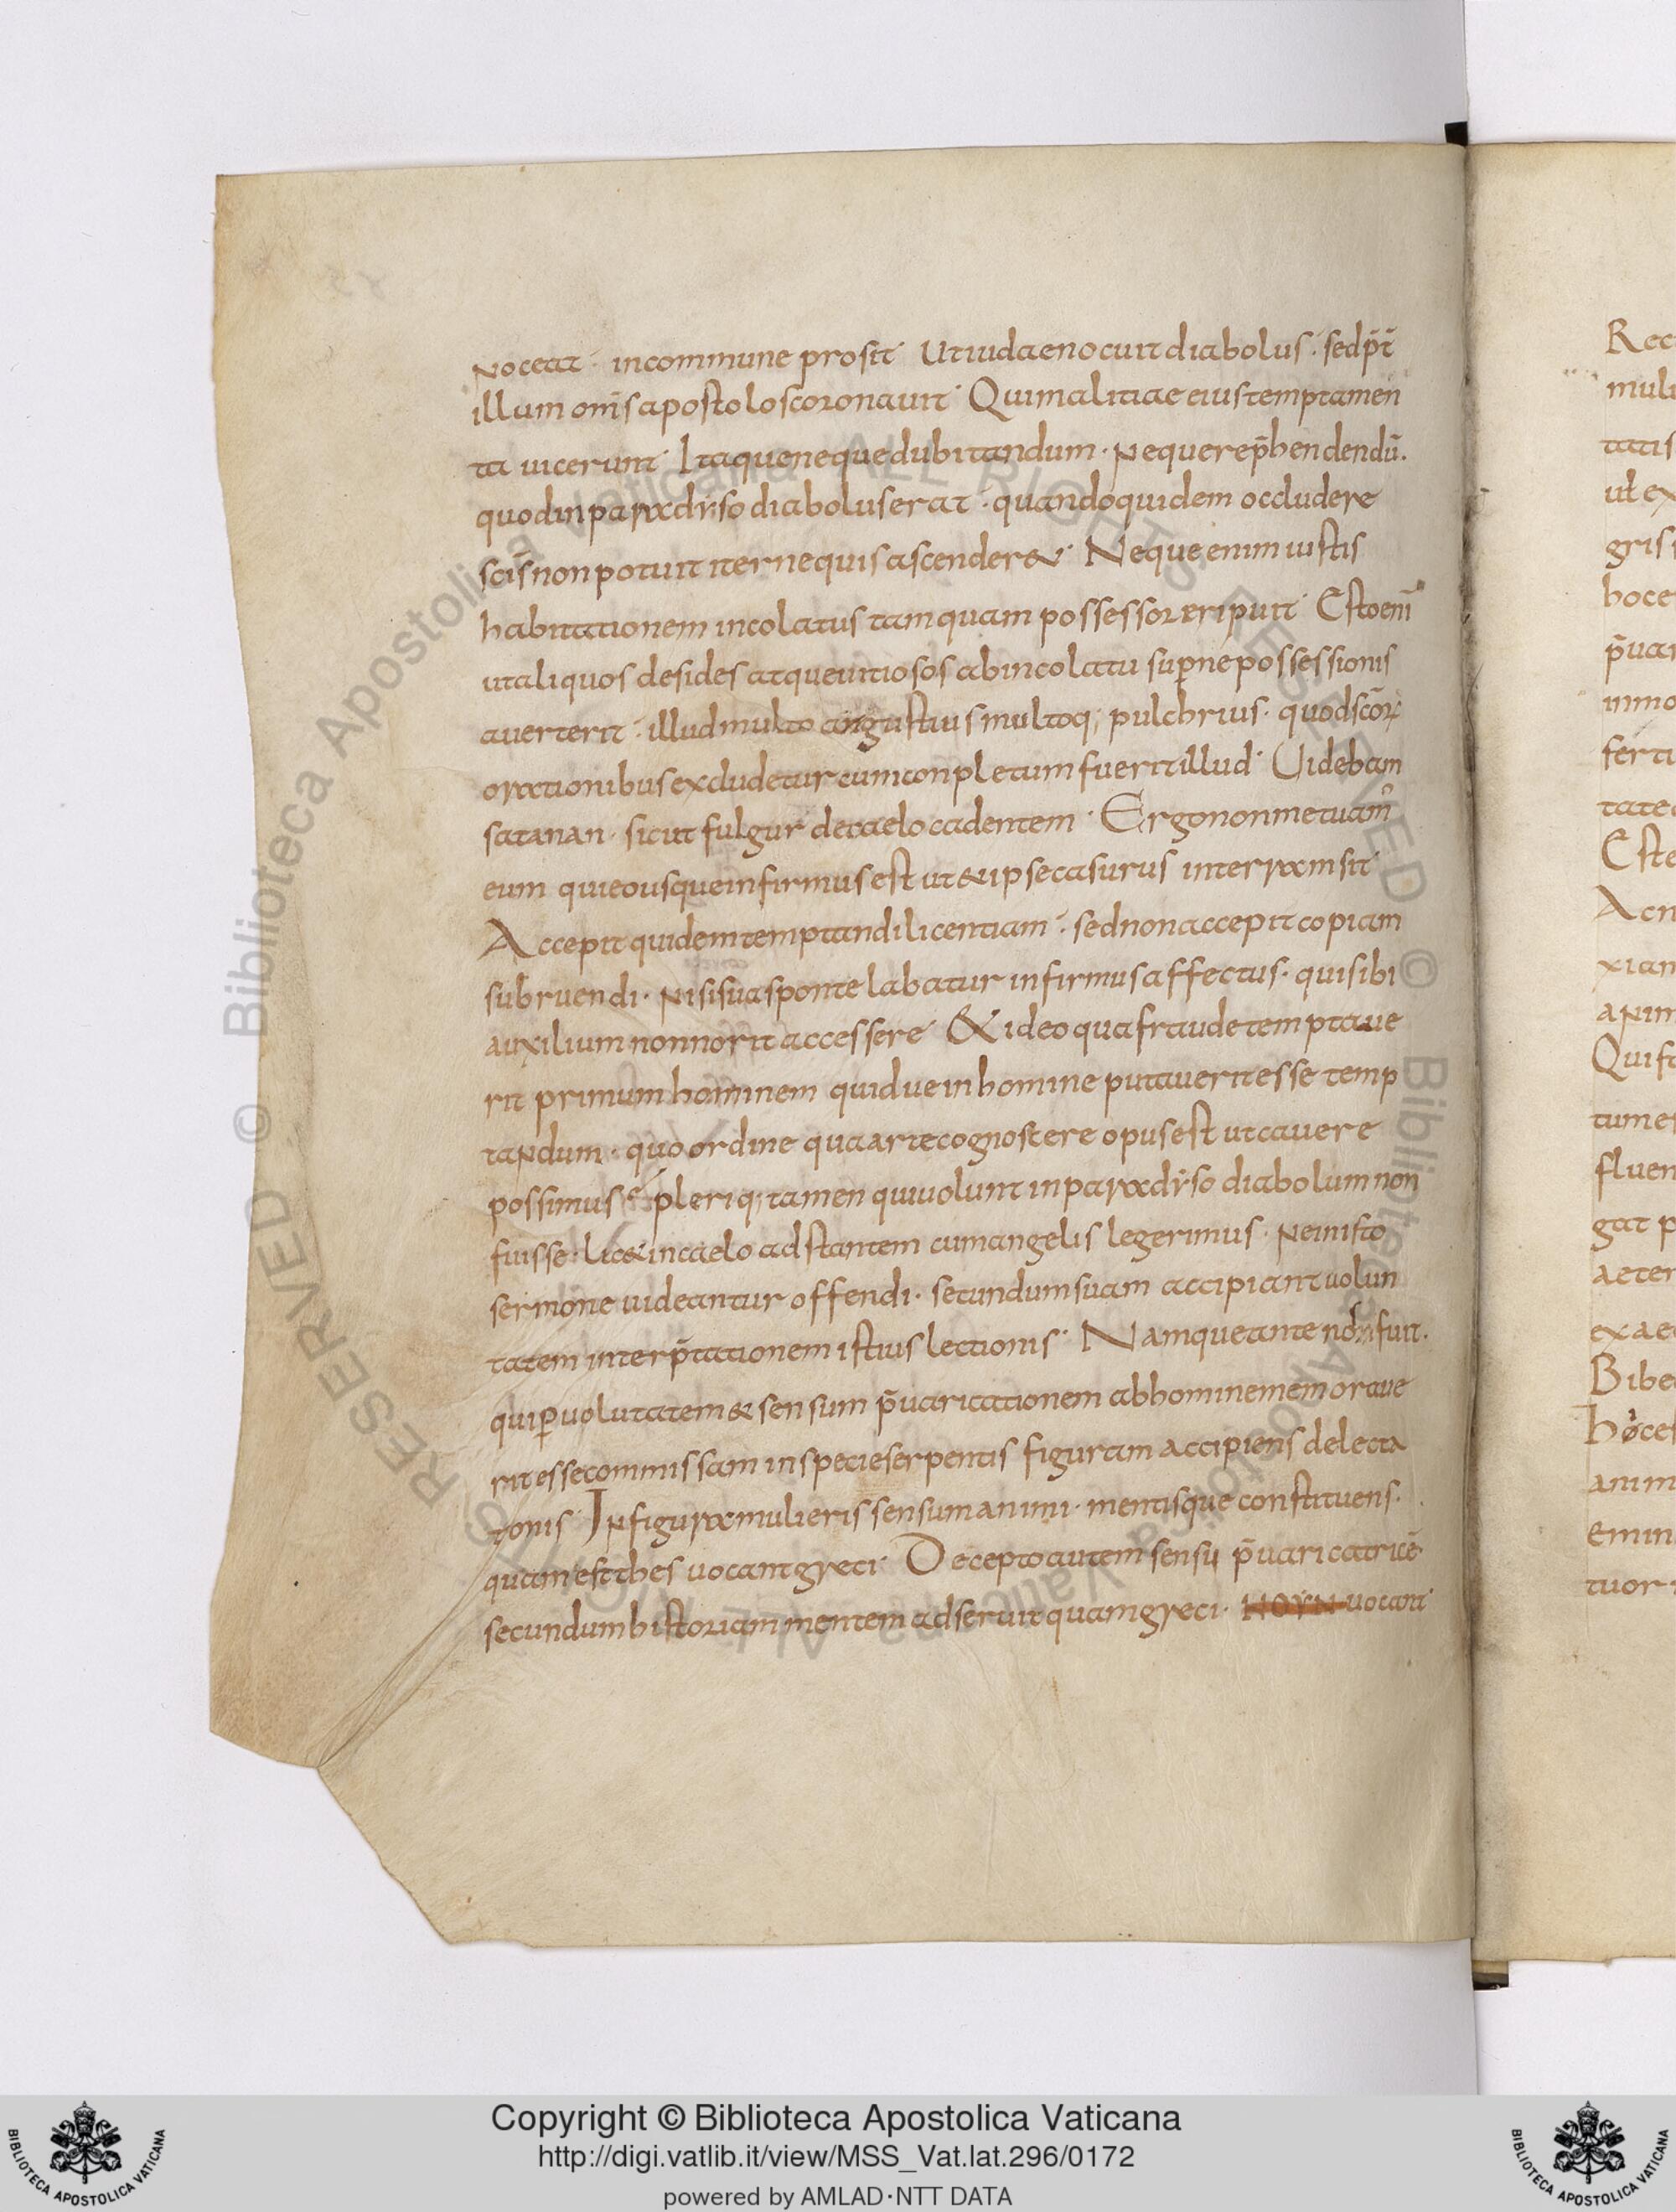 noceat · in commune prosit · Ut iudae nocuit diabolus · sed p̄t̄
illum om̄s apostolos coronauit · Qui malitiae eius temptamen
ta uicerunt · Itaque neque dubitandum · neque rep̄hendendū ·
quod in paradyso diabolus erat · quandoquidem occludere
sc̄is non potuit iter ne quis ascender& · Neque enim iustis
habitationem incolatus tamquam possessor eripuit · Esto eni̅
ut aliquos desides atque uitiosos ab incolatu sup̱ne possessionis
auerterit · illud multo angustius multoq; pulchrius · quod sc̄oꝝ
orationibus excludetur cum conpletum fuerit illud · Uidebam
satanan · sicut fulgur de caelo cadentem · Ergo non metuam⁹
eum qui eousque infirmus est ut & ipse casurus in terram sit
Accepit quidem temptandi licentiam · sed non accepit copiam
subruendi · nisi sua sponte labatur infirmus affectus · qui sibi
auxilium non norit accessere · & ideo qua fraude temptaue
rit primum hominem quidue in homine putauerit esse temp
tandum · quo ordine qua arte cognoscere opus est ut cauere
possimus · pleriq; tamen qui uolunt in paradyso diabolum non
fuisse · lic& in caelo adstantem cum angelis legerimus · ne in isto
sermone uideantur offendi · secundum suam accipiant uolun
tatem interp̄tationem istius lectionis · Namque ante nos fuit ·
qui ꝑ uolutatem & sensum p̄uaricationem ab homine memoraue
rit esse commissam in specie serpentis figuram accipiens delecta
tonis · In figura mulieris sensum animi · mentisque constituens ·
quam esthes uocant greci · Decepto autem sensu p̄uaricatricē
secundum historiam mentem adseruit quam greci · NOYN uocant
Rec
mul
tatis
ut ex
gris
hoc e
p̄uar
immo
fert
tate
Este
Acn
xian
anim
Quif
tume
fluen
gat p
aeter
ex ae
Bibe
hoc es
anim
emin
tuor
© Biblioteca Apostolica Vaticana ALL RIGHTS RESERVED © Biblioteca Apostolica Vaticana ALL RIGHTS RESERVED
Copyright © Biblioteca Apostolica Vaticana
http://digi.vatlib.it/view/MSS_Vat.lat.296/0172
powered by AMLAD·NTT DATA
BIBLIOTECA APOSTOLICA VATICANA
BIBLIOTECA APOSTOLICA VATICANA